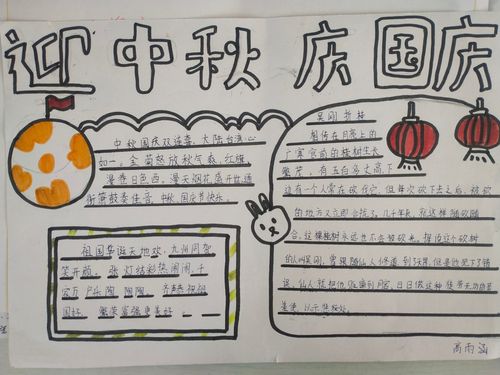 迎中秋 庆国庆
中秋国庆双连喜,大陆台湾心
如一。金菊怒放秋气爽,红旗
漫卷日色西。漫天烟花盛开放,通
街歌鼓奏佳音。中秋国庆节快乐。
祖国华诞天地欢,九州同贺
笑开颜。张灯结彩热闹闹,千
家万户乐陶陶。齐声祝祖
国好,繁荣富强更美好。
吴刚折桂
相传在月亮上的
广寒宫前的桂树生长
繁茂,有五百多丈高下
边有一个人常在砍伐它,但每次砍下去之后,被砍
的地方又立即合拢了。几千年来,就这样随砍随
合,这棵桂树永远也不会被砍光。据说这个砍树
的人叫吴刚,曾跟随仙人修道,到了天界,但是他犯下了错
误,仙人就把他贬谪到月宫,日日做这种徒劳无功的苦
差使,以示惩处。
高雨涵